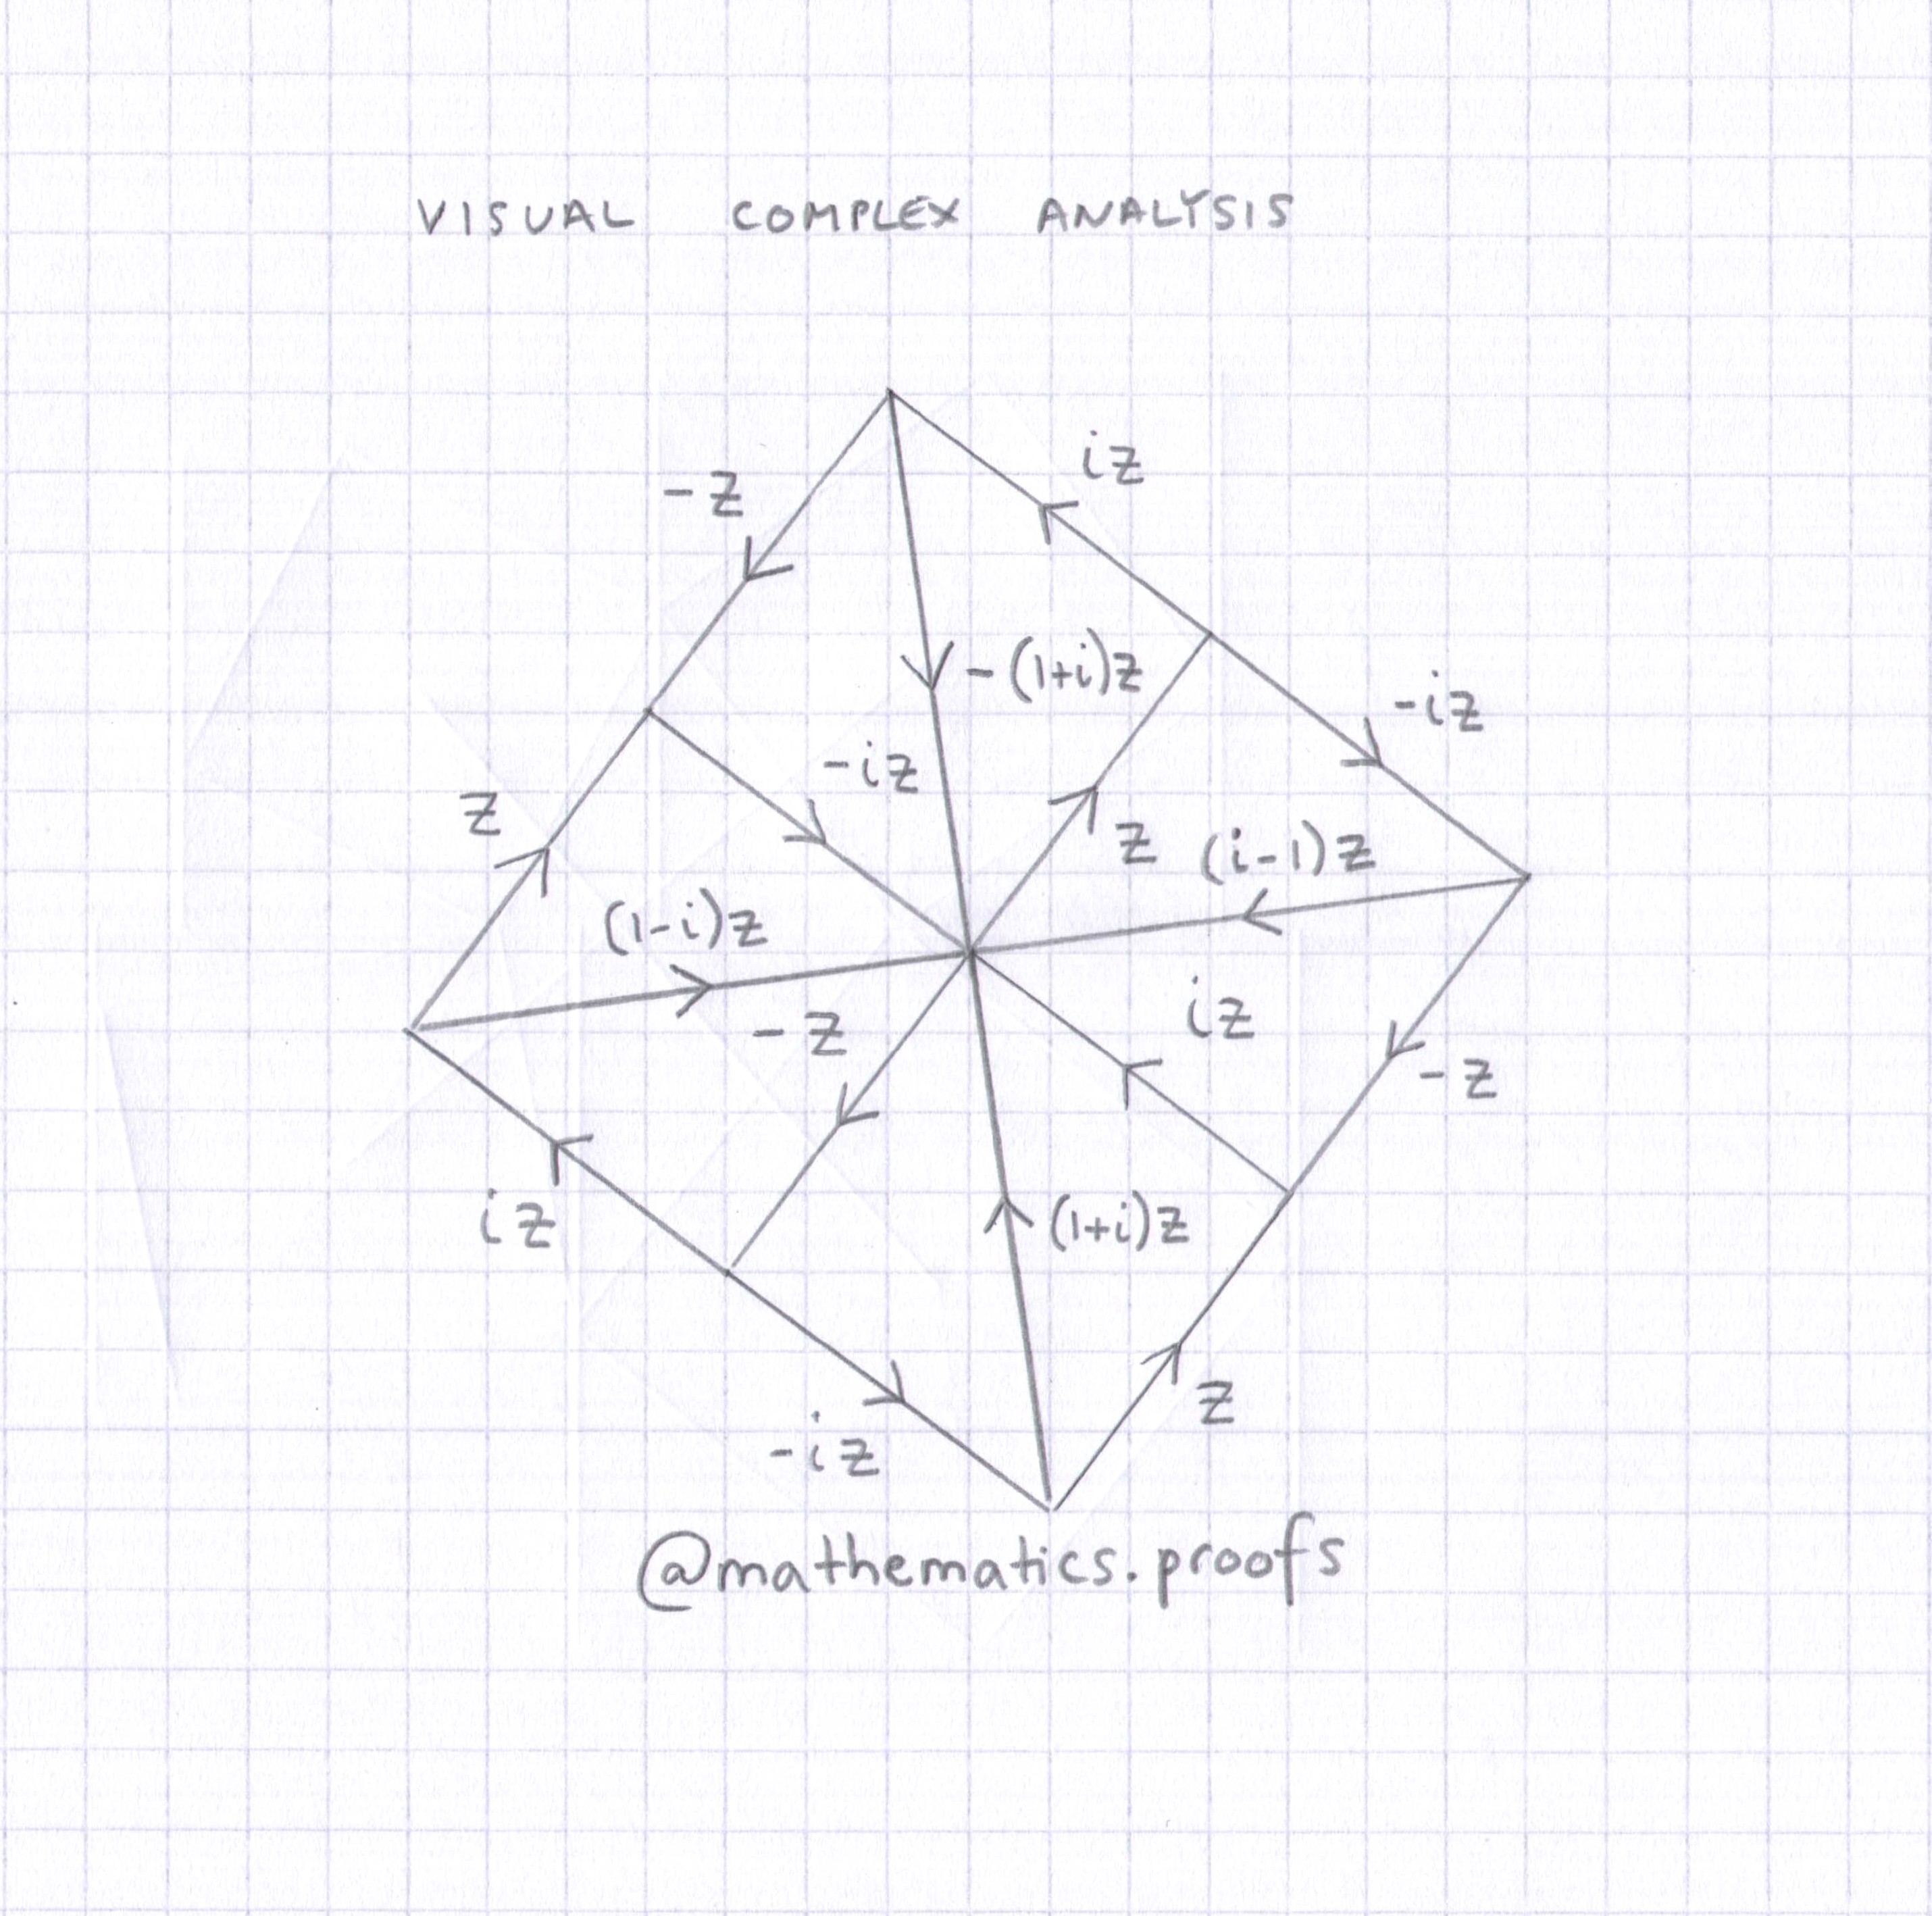 VISUAL COMPLEX ANALYSIS
iz
-z
-(1+i)z
-iz
-iz
z
z
(i-1)z
(1-i)z
iz
-z
-z
iz
(1+i)z
z
-iz
@mathematics.proofs